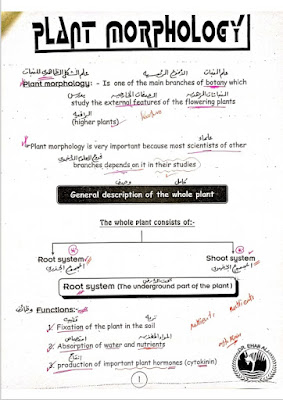 PLANT MORPHOLOGY
علم الشكل الظاهري للنبات
الأفرع الرئيسية
علم النبات
Plant morphology: - Is one of the main branches of botany which
يدرس
الصفات الخارجية
النباتات الزهرية
study the external features of the flowering plants
الراقية
(higher plants)
علماء
Plant morphology is very important because most scientists of other
branches depends on it in their studies
General description of the whole plant
The whole plant consists of:-
Root system
Shoot system
المجموع الجذري
المجموع الخضري
Root system (The underground part of the plant)
وظائف
Functions:-
تثبيت
تربة
1. Fixation of the plant in the soil
امتصاص
2. Absorption of water and nutrients
إنتاج
3. production of important plant hormones (cytokinin)
1
DR. EHAB ALI